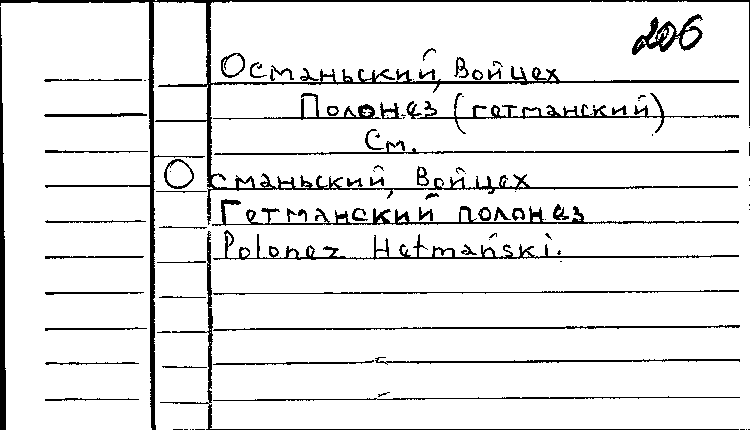 206
Османьский, Войцех
Полонез (гетманский)
См.
Османьский, Войцех
Гетманский полонез
Polonez Hetmański.